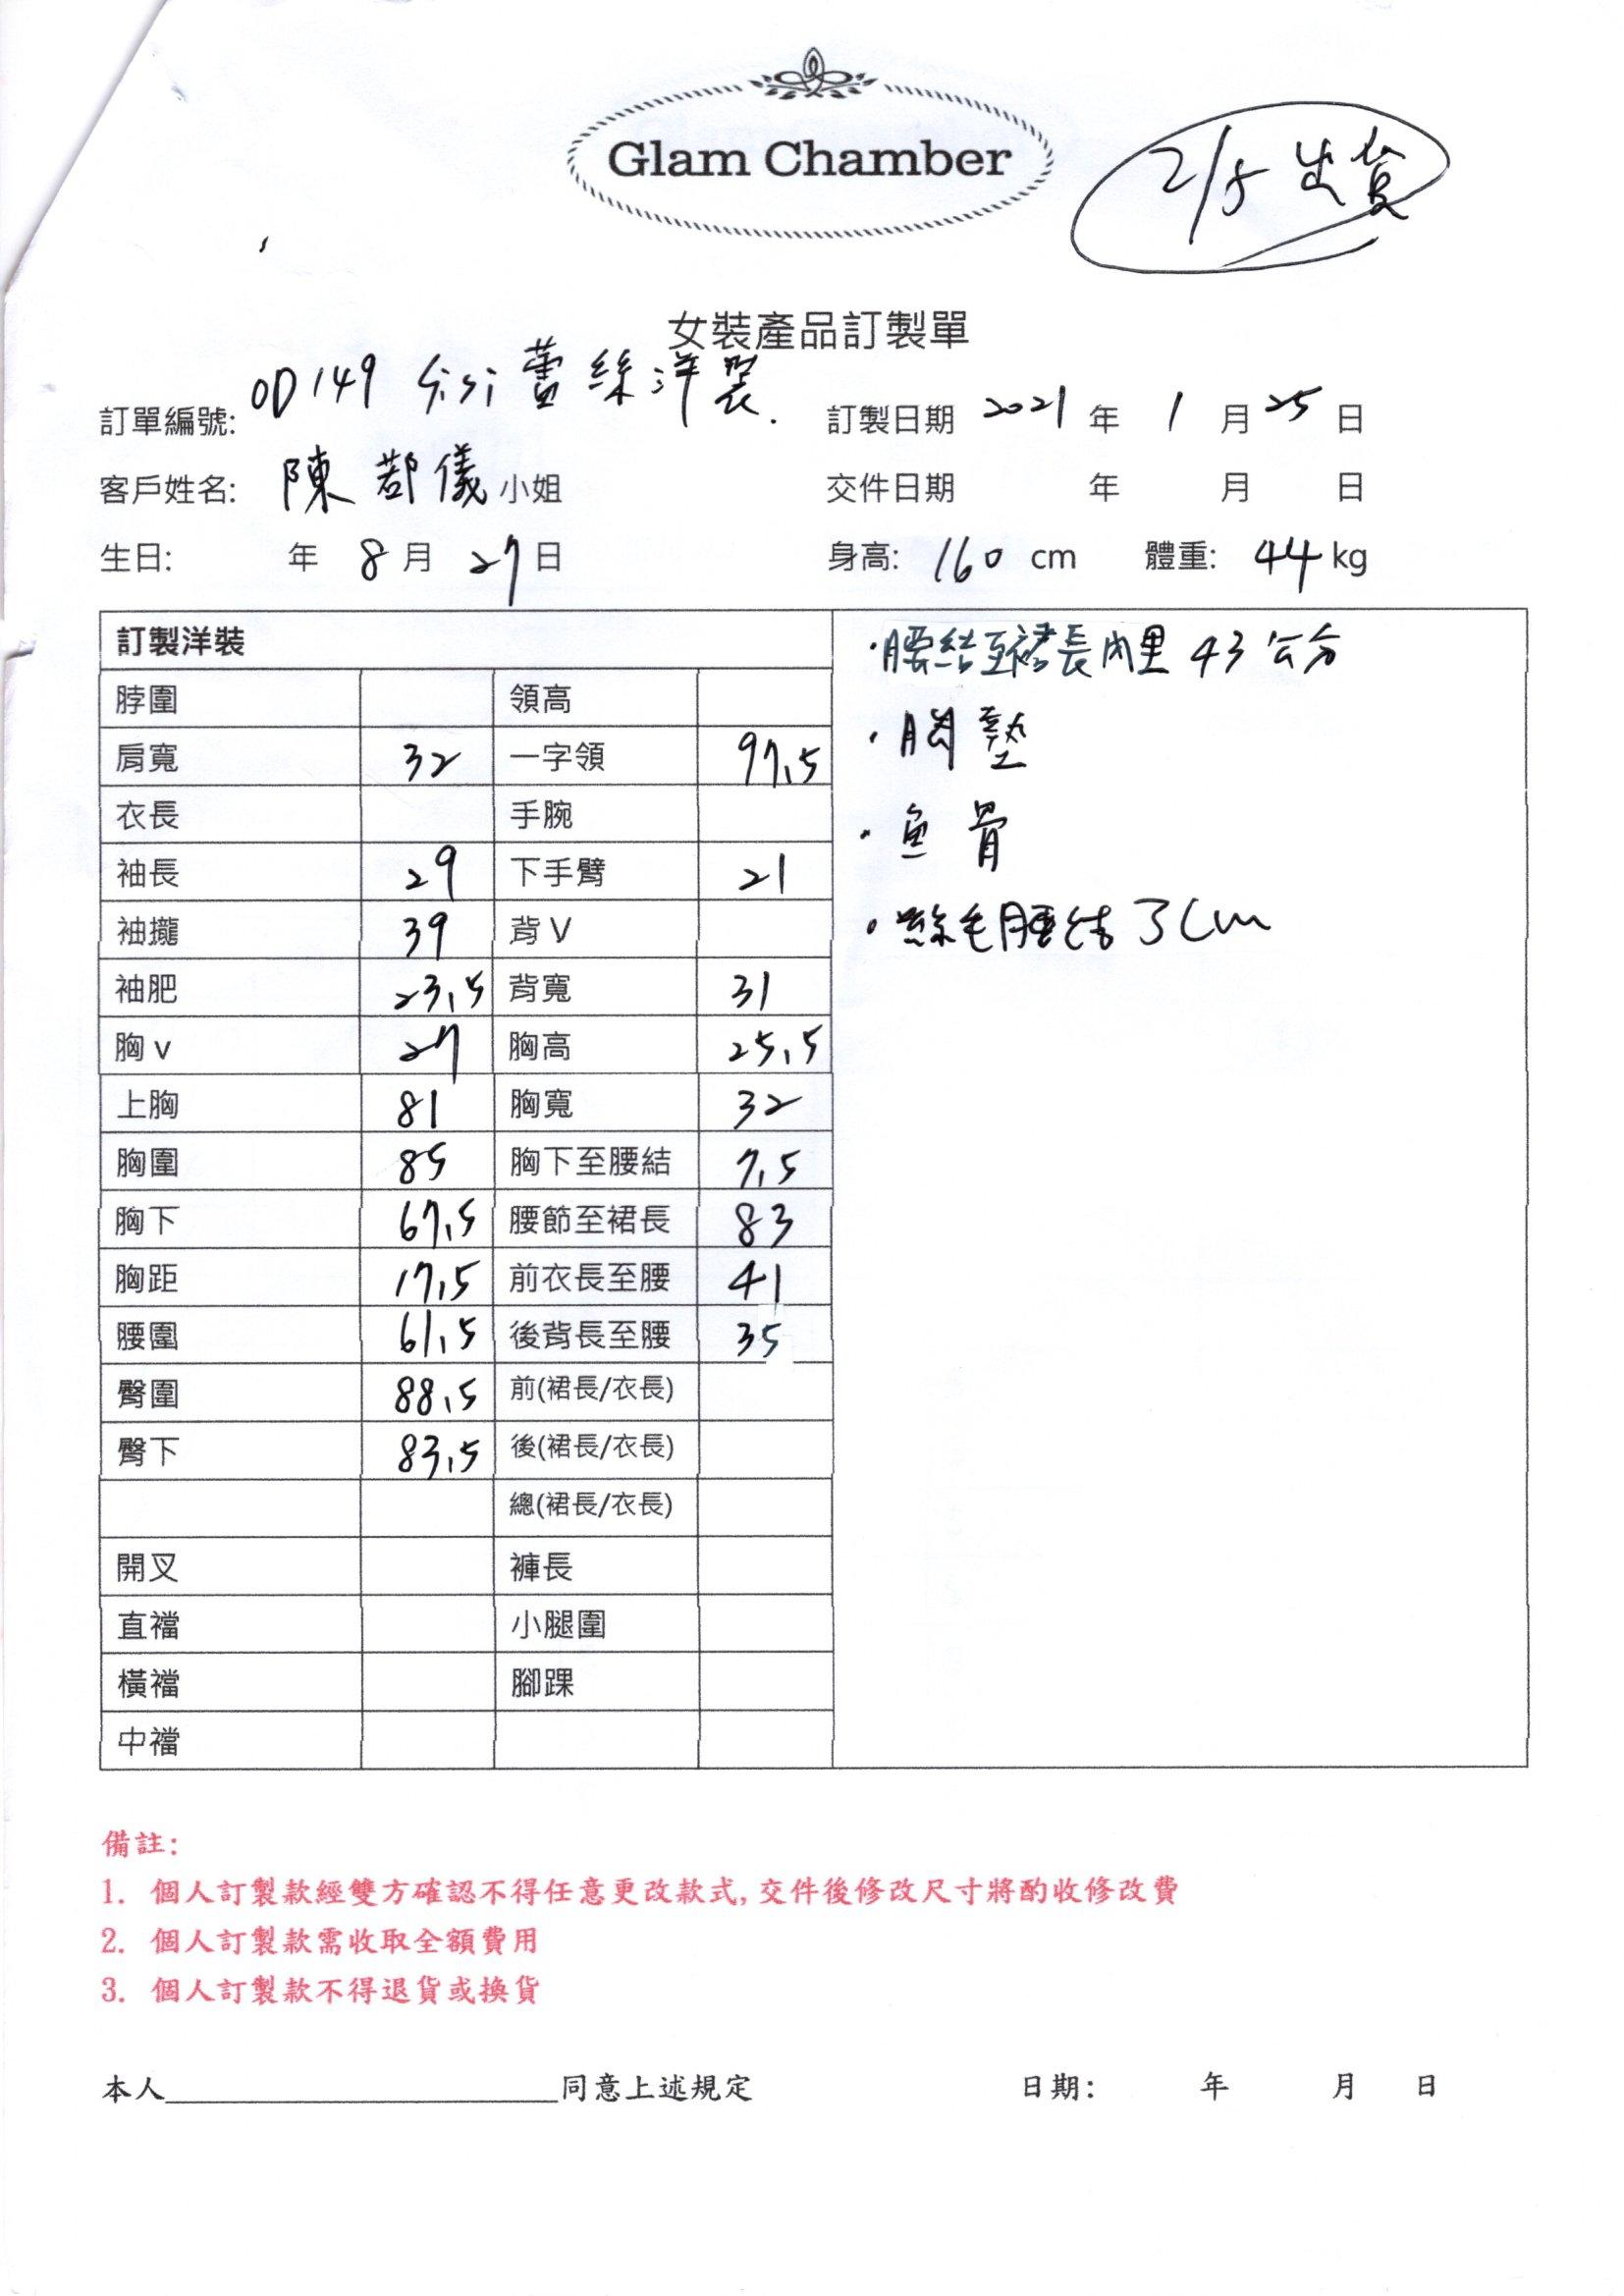 Glam Chamber
2/5 出貨
女裝產品訂製單
訂單編號: OD149 Sisi 蕾絲洋裝.
訂製日期 2021 年 1 月 25 日
客戶姓名: 陳郡儀 小姐
交件日期 年 月 日
生日: 年 8 月 27 日
身高: 160 cm 體重: 44 kg
訂製洋裝
脖圍 領高
肩寬 32 一字領 97.5
衣長 手腕
袖長 29 下手臂 21
袖攏 39 背 V
袖肥 23.5 背寬 31
胸 v 27 胸高 25.5
上胸 81 胸寬 32
胸圍 85 胸下至腰結 7.5
胸下 67.5 腰節至裙長 83
胸距 17.5 前衣長至腰 41
腰圍 61.5 後背長至腰 35
臀圍 88.5 前(裙長/衣長)
臀下 83.5 後(裙長/衣長)
總(裙長/衣長)
開叉 褲長
直襠 小腿圍
橫襠 腳踝
中襠
·腰結至裙長內里 43 公分
·胸墊
·魚骨
·絲毛腰結 3cm
備註:
1. 個人訂製款經雙方確認不得任意更改款式, 交件後修改尺寸將酌收修改費
2. 個人訂製款需收取全額費用
3. 個人訂製款不得退貨或換貨
本人____________________同意上述規定 日期: 年 月 日